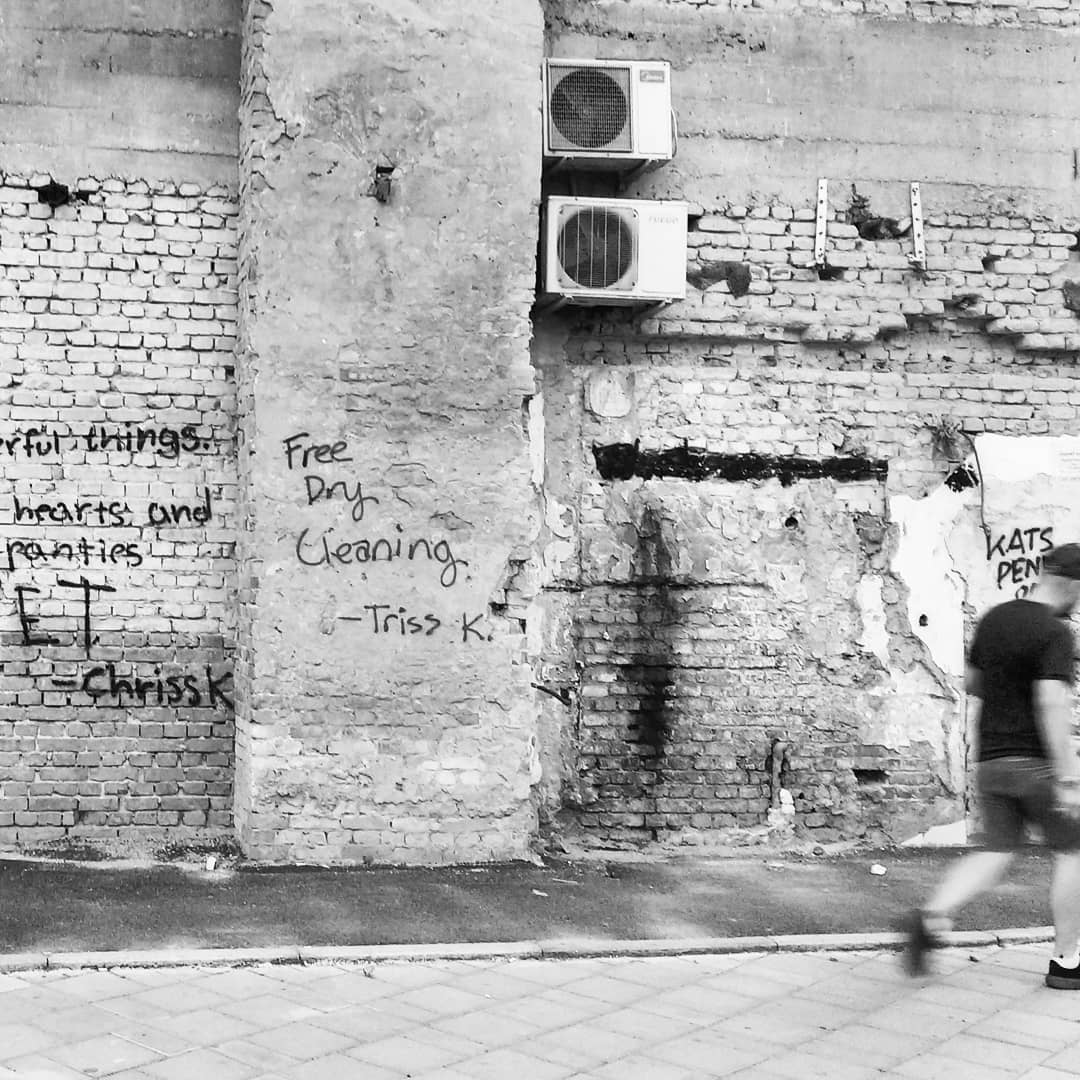 things.
hearts and
panties
ET
-ChrissK
Free
Dry
Cleaning
-Triss K.
KATS